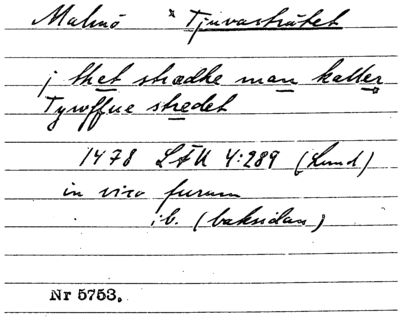 Malmö x Tjuvasträtet
j thet strædhe man kaller
Tyroffue stredet
1478 LÄU 4:289 (Lund)
in vico furum
ib. (baksidan)
Nr 5753.